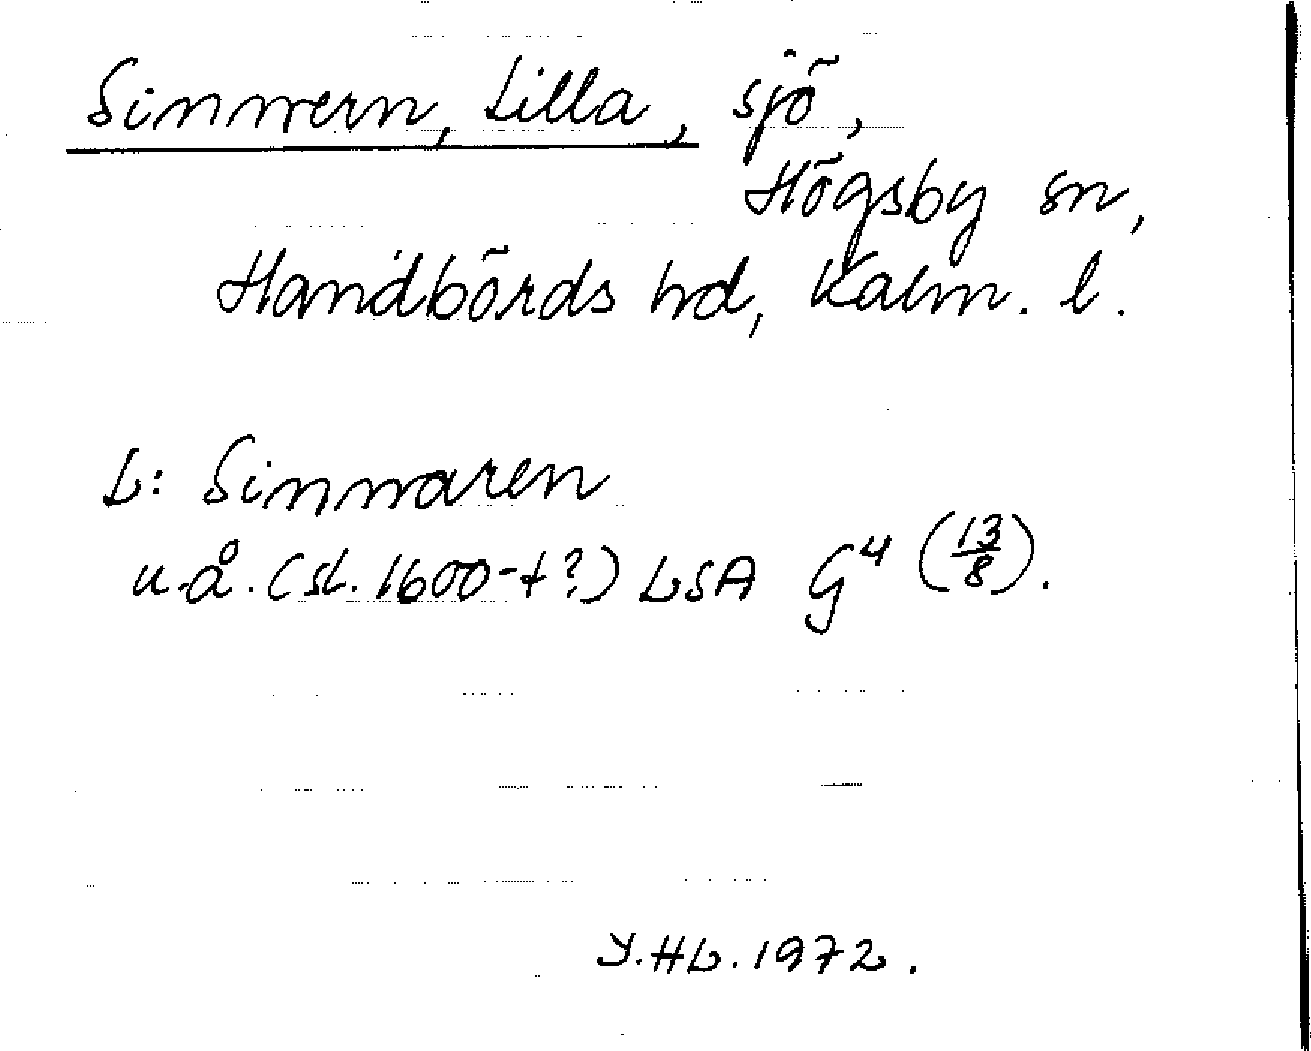 Sinnern, Lilla, sjö,
Högsby sn,
Handbörds hd, Kalm. l.
L: Sinnaren
u.å. (sl. 1600-t?) LSA G⁴ (13/8).
Y.HL. 1972.